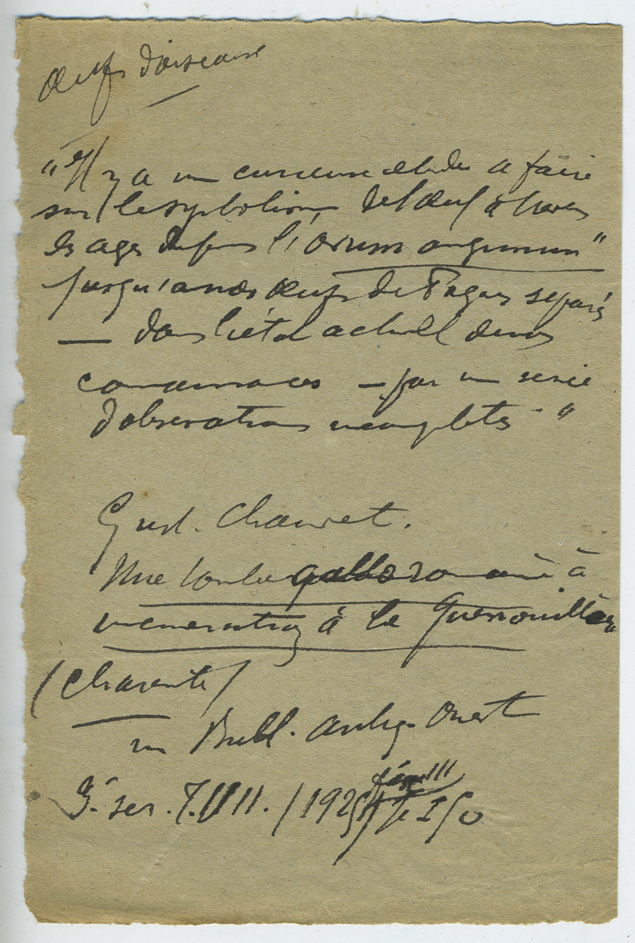 œufs d'oiseaux
"Il y a un curieuse etude a faire
sur le symbolisme de l'œuf à travers
les ages depuis l'ovum anguinum"
jusqu'a nos œufs de Paques séparés
— dans l'état actuel de nos
connaissances — par un serie
d'observations incomplètes"
Gust. Chauvet.
Une tombe gallo romaine à
incineration à la Guerrouillère
(Charente)
in Bull. antiq. Ouest
3e ser. T. VII. / 192